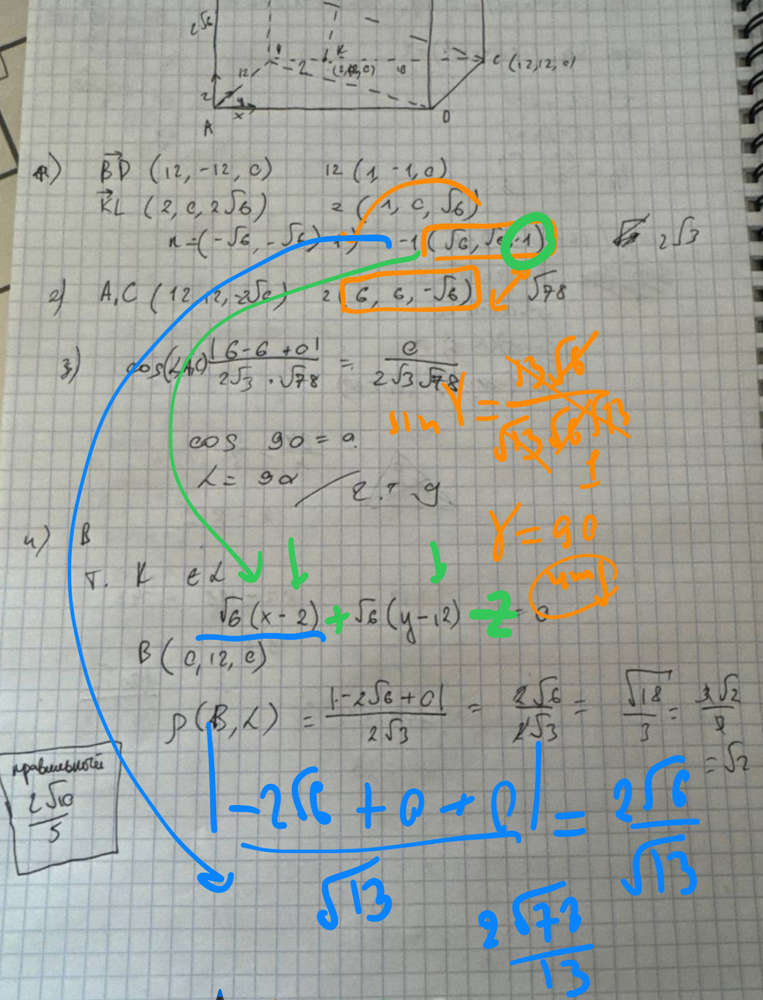 2√6
12
2
K
(2,12,0)
C (12,12,0)
z
y
x
A
D
1) BD (12, -12, 0) 12 (1, -1, 0)
KL (2, 0, 2√6) 2 (1, 0, √6)
n = (-√6, -√6, 1) -1 (√6, √6, -1) 2√3
2) A₁C (12, 12, -2√6) 2 (6, 6, -√6) √78
3) |6-6+0| / 2√3 · √78 = 0 / 2√3 √78
sin γ = √13 √6 √13
1
cos 90 = 0
L = 90 ч.т.д.
γ = 90
чтд
4) B
т. K ∈ L
√6 (x-2) + √6 (y-12) - z = 0
B (0, 12, 0)
ρ(B, L) = |-2√6+0| / 2√3 = 2√6 / 2√3 = √18 / 3 = 3√2 / 3
= √2
правильный
2√10 / 5
|-2√6 + 0 + 0| / √13 = 2√6 / √13
2√78 / 13